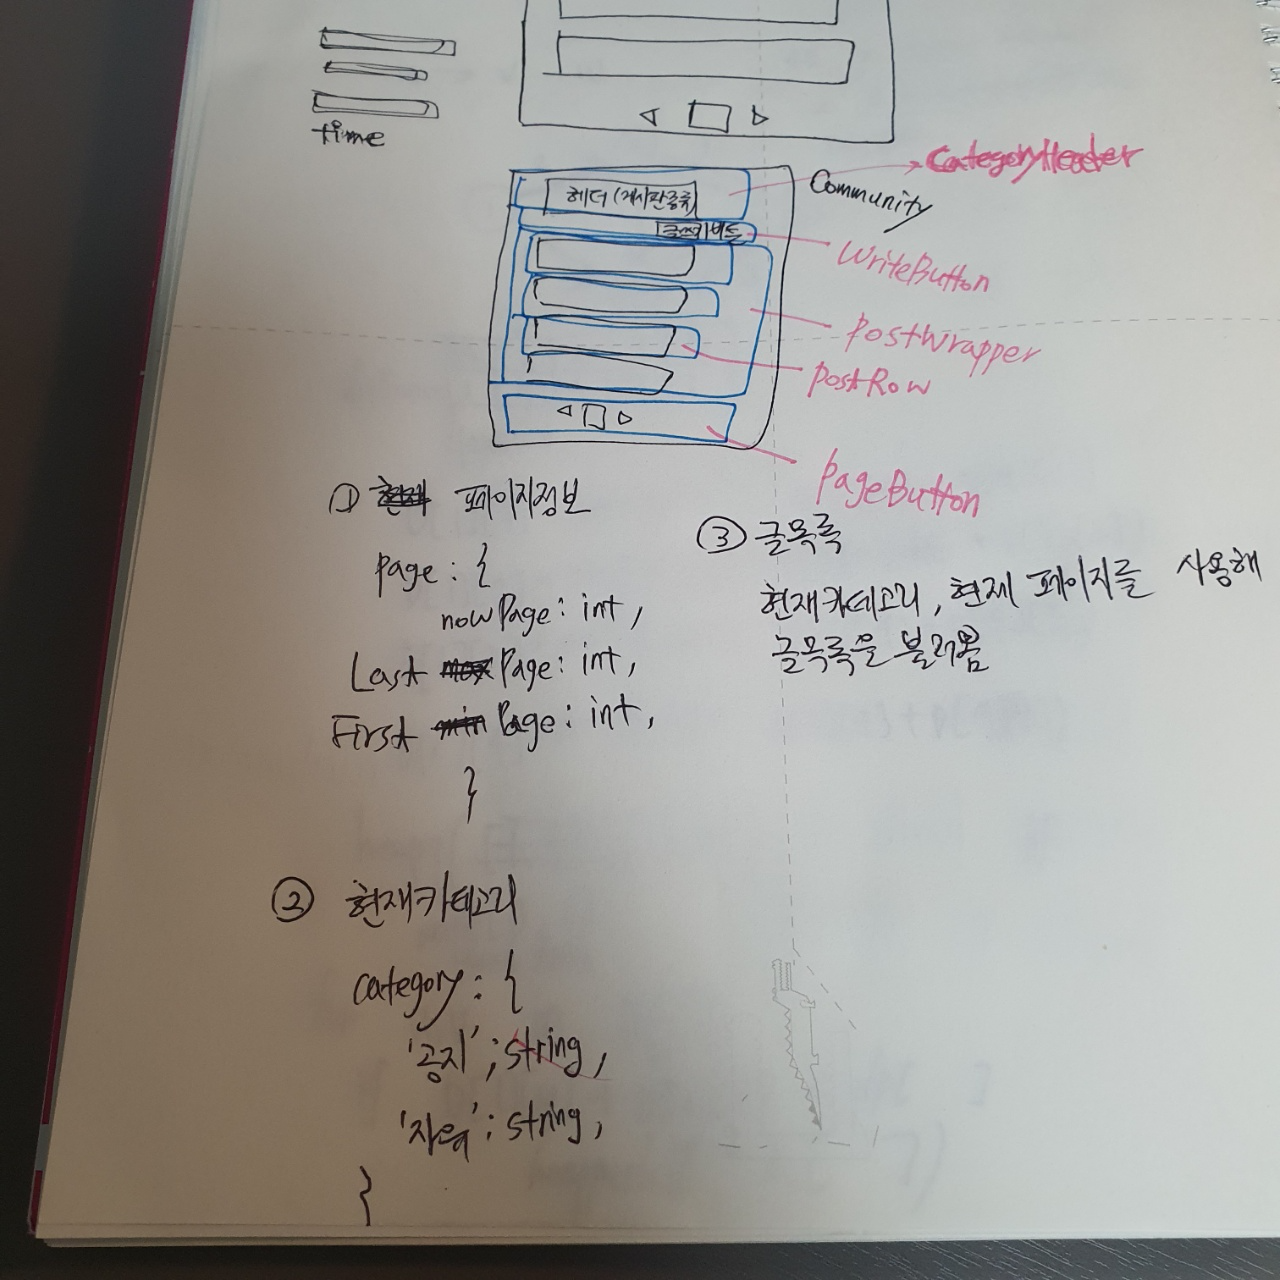 time
CategoryHeader
헤더 (게시판종류)
Community
글쓰기버튼
WriteButton
PostWrapper
PostRow
PageButton
① 현재 페이지정보
page : {
nowPage : int,
Last max Page : int,
First min Page : int,
}
③ 글목록
현재카테고리, 현재 페이지를 사용해
글목록을 불러옴
② 현재카테고리
category : {
'공지' ; string,
'자유' : string,
}